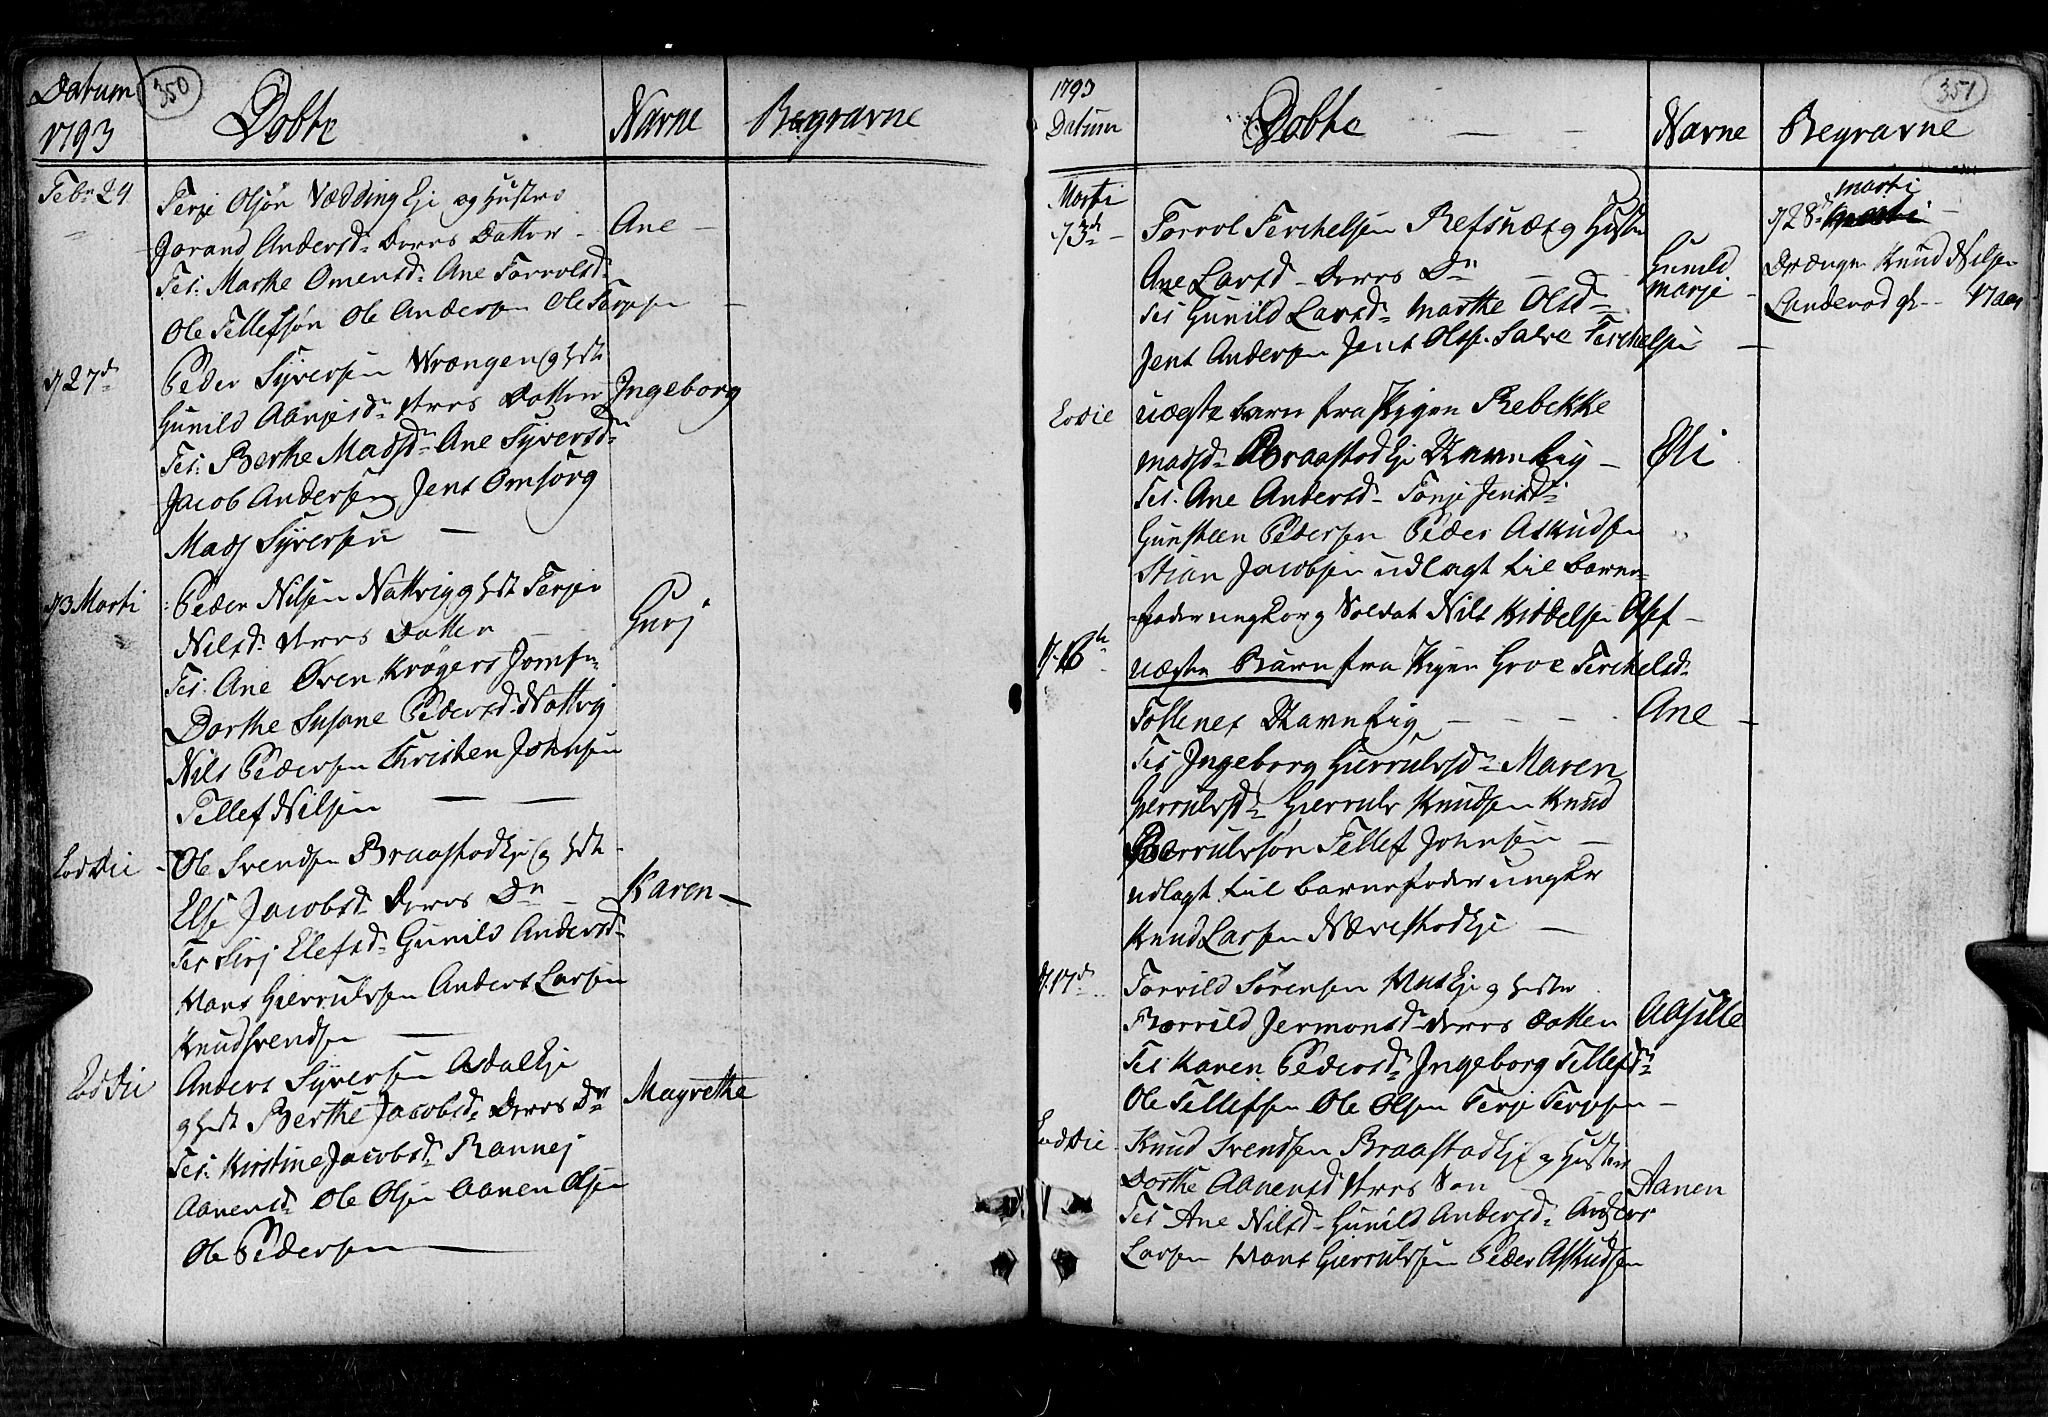 Datum 350 Døbte Navne Begravne
1793
Febr 24 Terje Olsøn Vædding Eje og Hustro
Jorand Andersd. Deres Datter - Ane -
Tes: Marthe Omensd. Ane Torvolsd.
Ole Tellefsøn Ole Andersen Ole Terjesen -
d 27d Peder Syversen Vrængen og hst
Gunild Aanjesd. deres Datter Ingeborg
Tes: Berthe Madsd. Ane Syversd.
Jacob Andersen Jens Omsorg
Mads Syversen -
d 3 Marti Peder Nilsen Nattvig og hst Terjer
Nilsd. deres Datter Gurj
Tes: Ane Oven Krøgers Jomfr.
Dorthe Susane Pedersd. Nattvig
Nils Pedersen Christen Johnsen
Tellef Nilsen - -
Eoddie - Ole Svendsen Braastad Eje og hst
Else Jacobsd. Deres Dn - Karen -
Tes Sirj Elefsd. Gunild Andersd.
Hans Gierrulvsen Anders Larsen
Knud Svendsen -
Eoddie Anders Syversen Asdal Eje
og hst Berthe Jacobsd. Deres Dn Magrethe
Tes: Kirstine Jacobsd. Rannej
Aanensd. Ole Olsen Aanen Olsen
Ole Pedersen
1793 351
Datum Døbte - - Navne Begravne
Marti
d 3d - Torvol Terchelsen Refsnæs og Hustr
Ane Larsd. Deres Dn - Gunild
Marje -
Tes Gunild Larsd. Marthe Olsd.
Jens Andersen Jens Olsen Salve Terchelsen -
d 28d Marti
Drængen Knud Nilsen
Landerød gl - 17 aar
Eoddie uægte barn fra Pigen Rebekke
Madsd. Braastad Eje Havnlig - Oli
Tes: Ane Andersd. Tonje Jensd.
Gunsteen Pedersen Peder Asknudsen
Stian Jacobsen udlagt til barne-
fader ungkarl og Soldat Nils Kiddelsen Asf -
d. 16 uægte Barn fra Pigen Groe Terchelsd.
Tollenes Havnlig - - - Ane -
Tes Ingeborg Gierrulvsd. Maren
Gierrulvsd. Gierrulv Knudsen Knud
Gierrulvsøn Tellef Johnsen -
udlagt til barnefader ungkr
Knud Larsen Nærestad Eje -
d. 17d Torvild Sørensen Huus Eje og hustr
Borrild Jermonsd. deres Datter Aasille
Tes Karen Pedersd. Ingeborg Tellefsd.
Ole Tellefsen Ole Olsen Terje Terjesen -
Eoddie - Knud Svendsen Braastad Eje og Hustr
Dorthe Aanensd. deres Søn Aanen
Tes Ane Nilsd. Gunild Andersd. Anders
Larsen Hans Gierrulvsen Peder Asknudsen